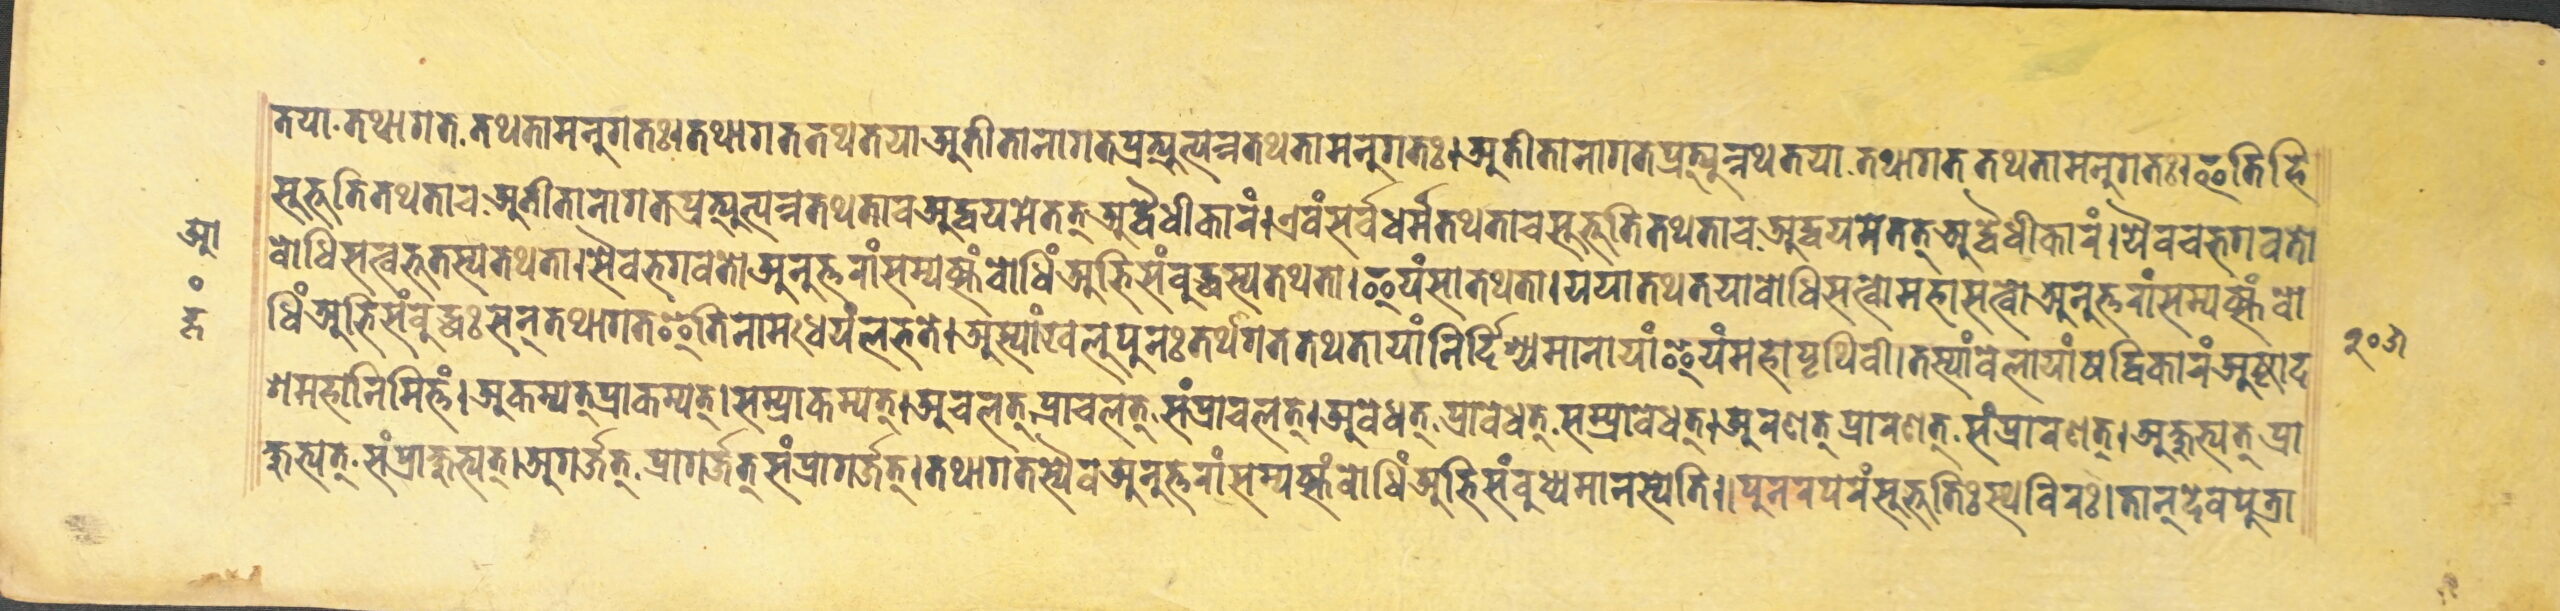 तया.तथागत.तथतामनुगतः।तथागततथतया अतीतानागतप्रत्युत्पन्नतथतामनुगतः।अतीतानागतप्रत्युन्नथतया.तथागततथतामनुगतः।इति हि
सुभूतितथताच.अतीतानागतप्रत्युत्पन्नतथताच अद्वयमेतत् अद्वैधीकारं।एवं सर्वधर्मतथताच सुभूतितथताच.अद्वयमेतत् अद्वैधीकारं।यैव च भगवतो
बोधिसत्वभूतस्य तथता।सैव भगवतो अनुत्तरां सम्यक्सं बोधिं अभिसंबुद्धस्य तथता।इयं सा तथता।यया तथतया बोधिसत्वो महासत्वो अनुत्तरां सम्यक्सं बो
धिं अभिसंबुद्धः सन् तथागत इति नामधेयं लभते।अस्यां खलु पुनः तर्थागततथतायां निर्दिश्यमानायां इयं महापृथिवी।तस्यां वेलायां षद्विकारं अष्टाद
शमहानिमित्तं।अकम्पत् प्राकम्पत्।सम्प्राकम्पत्।अचलत्.प्राचलत्.संप्राचलत्।अवेधत्.प्रावेधत्.सम्प्रावेधत्।अरणत् प्रारणत्.संप्रारणत्।अक्षुभ्यत् प्रा
क्षुभ्यत्.संप्राक्षुभ्यत्।अगर्जत्.प्रागर्जत् संप्रागर्जत्।तथागतस्यैव अनुत्तरां सम्यक्सं बोधिं अभिसंबुध्यमानस्येति॥पुनरपरं सुभूतिः स्थविरः।तान् देवपुत्रा
आ
२०३